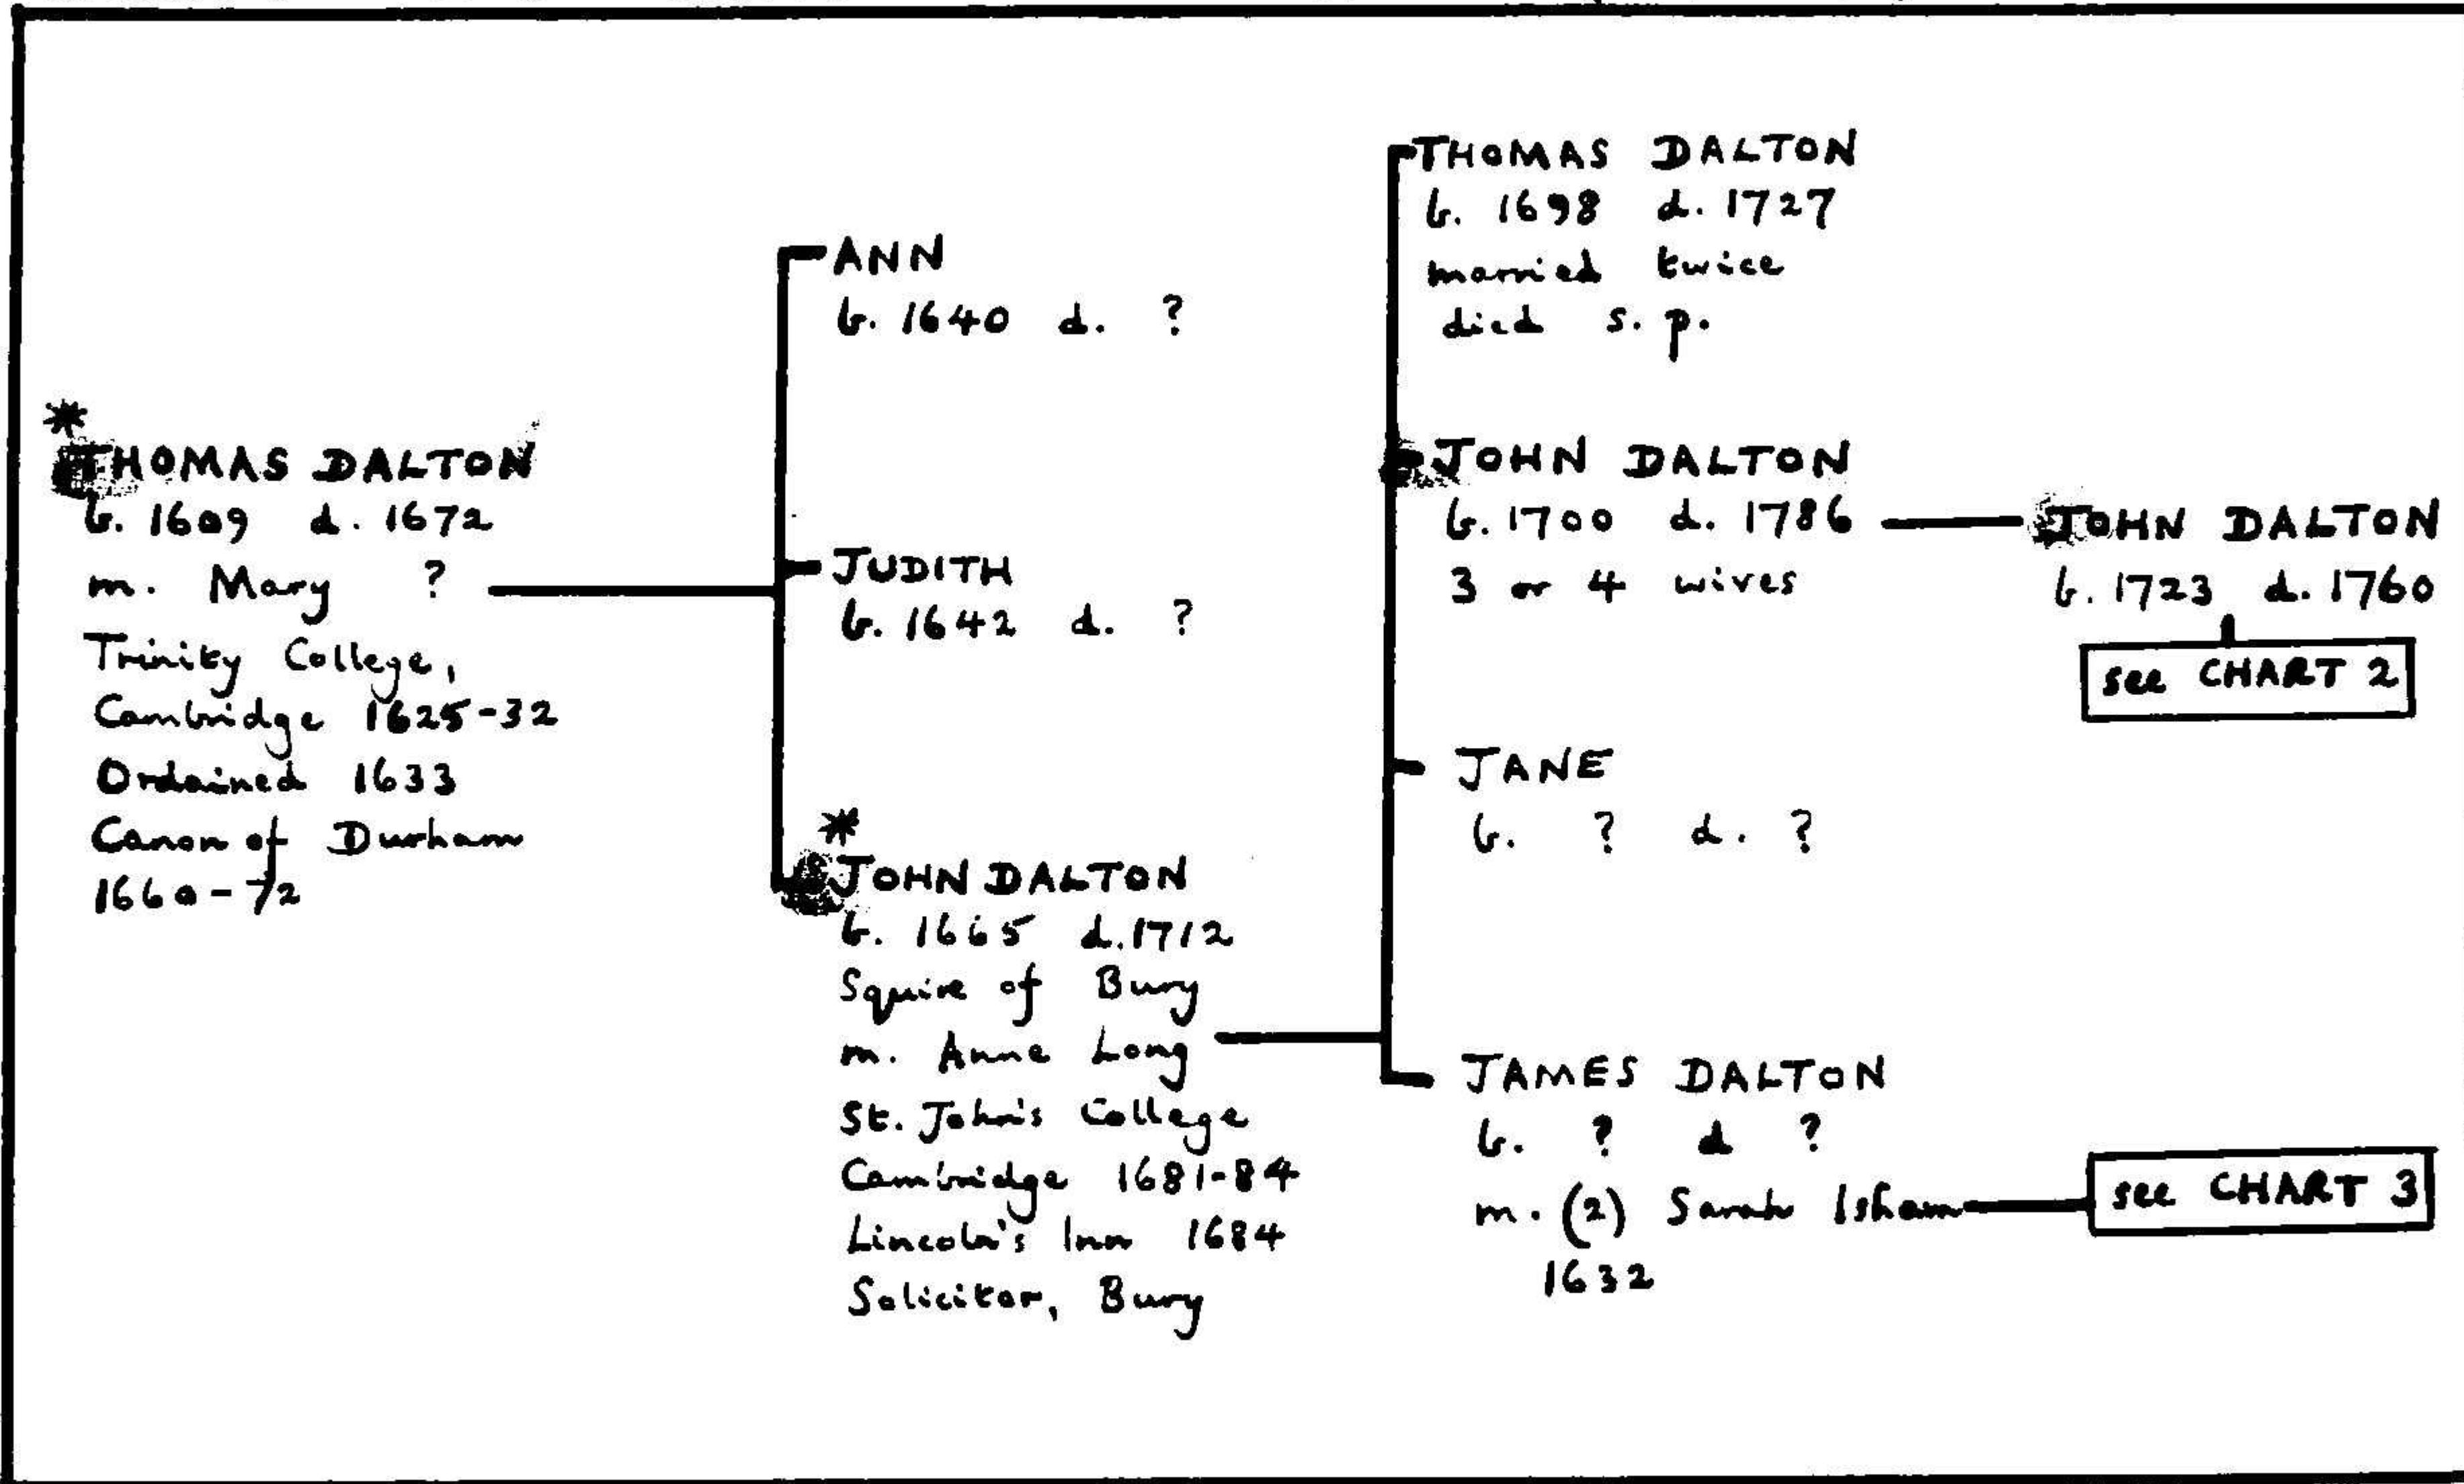 *
THOMAS DALTON
b. 1609 d. 1672
m. Mary ?
Trinity College,
Cambridge 1625-32
Ordained 1633
Canon of Durham
1660-72
ANN
b. 1640 d. ?
JUDITH
b. 1642 d. ?
*
JOHN DALTON
b. 1665 d. 1712
Squire of Bury
m. Anne Long
St. John's College
Cambridge 1681-84
Lincoln's Inn 1684
Solicitor, Bury
THOMAS DALTON
b. 1698 d. 1727
married twice
died s. p.
JOHN DALTON
b. 1700 d. 1786
3 or 4 wives
JANE
b. ? d. ?
JAMES DALTON
b. ? d ?
m. (2) Sarah Isham
1632
JOHN DALTON
b. 1723 d. 1760
see CHART 2
see CHART 3